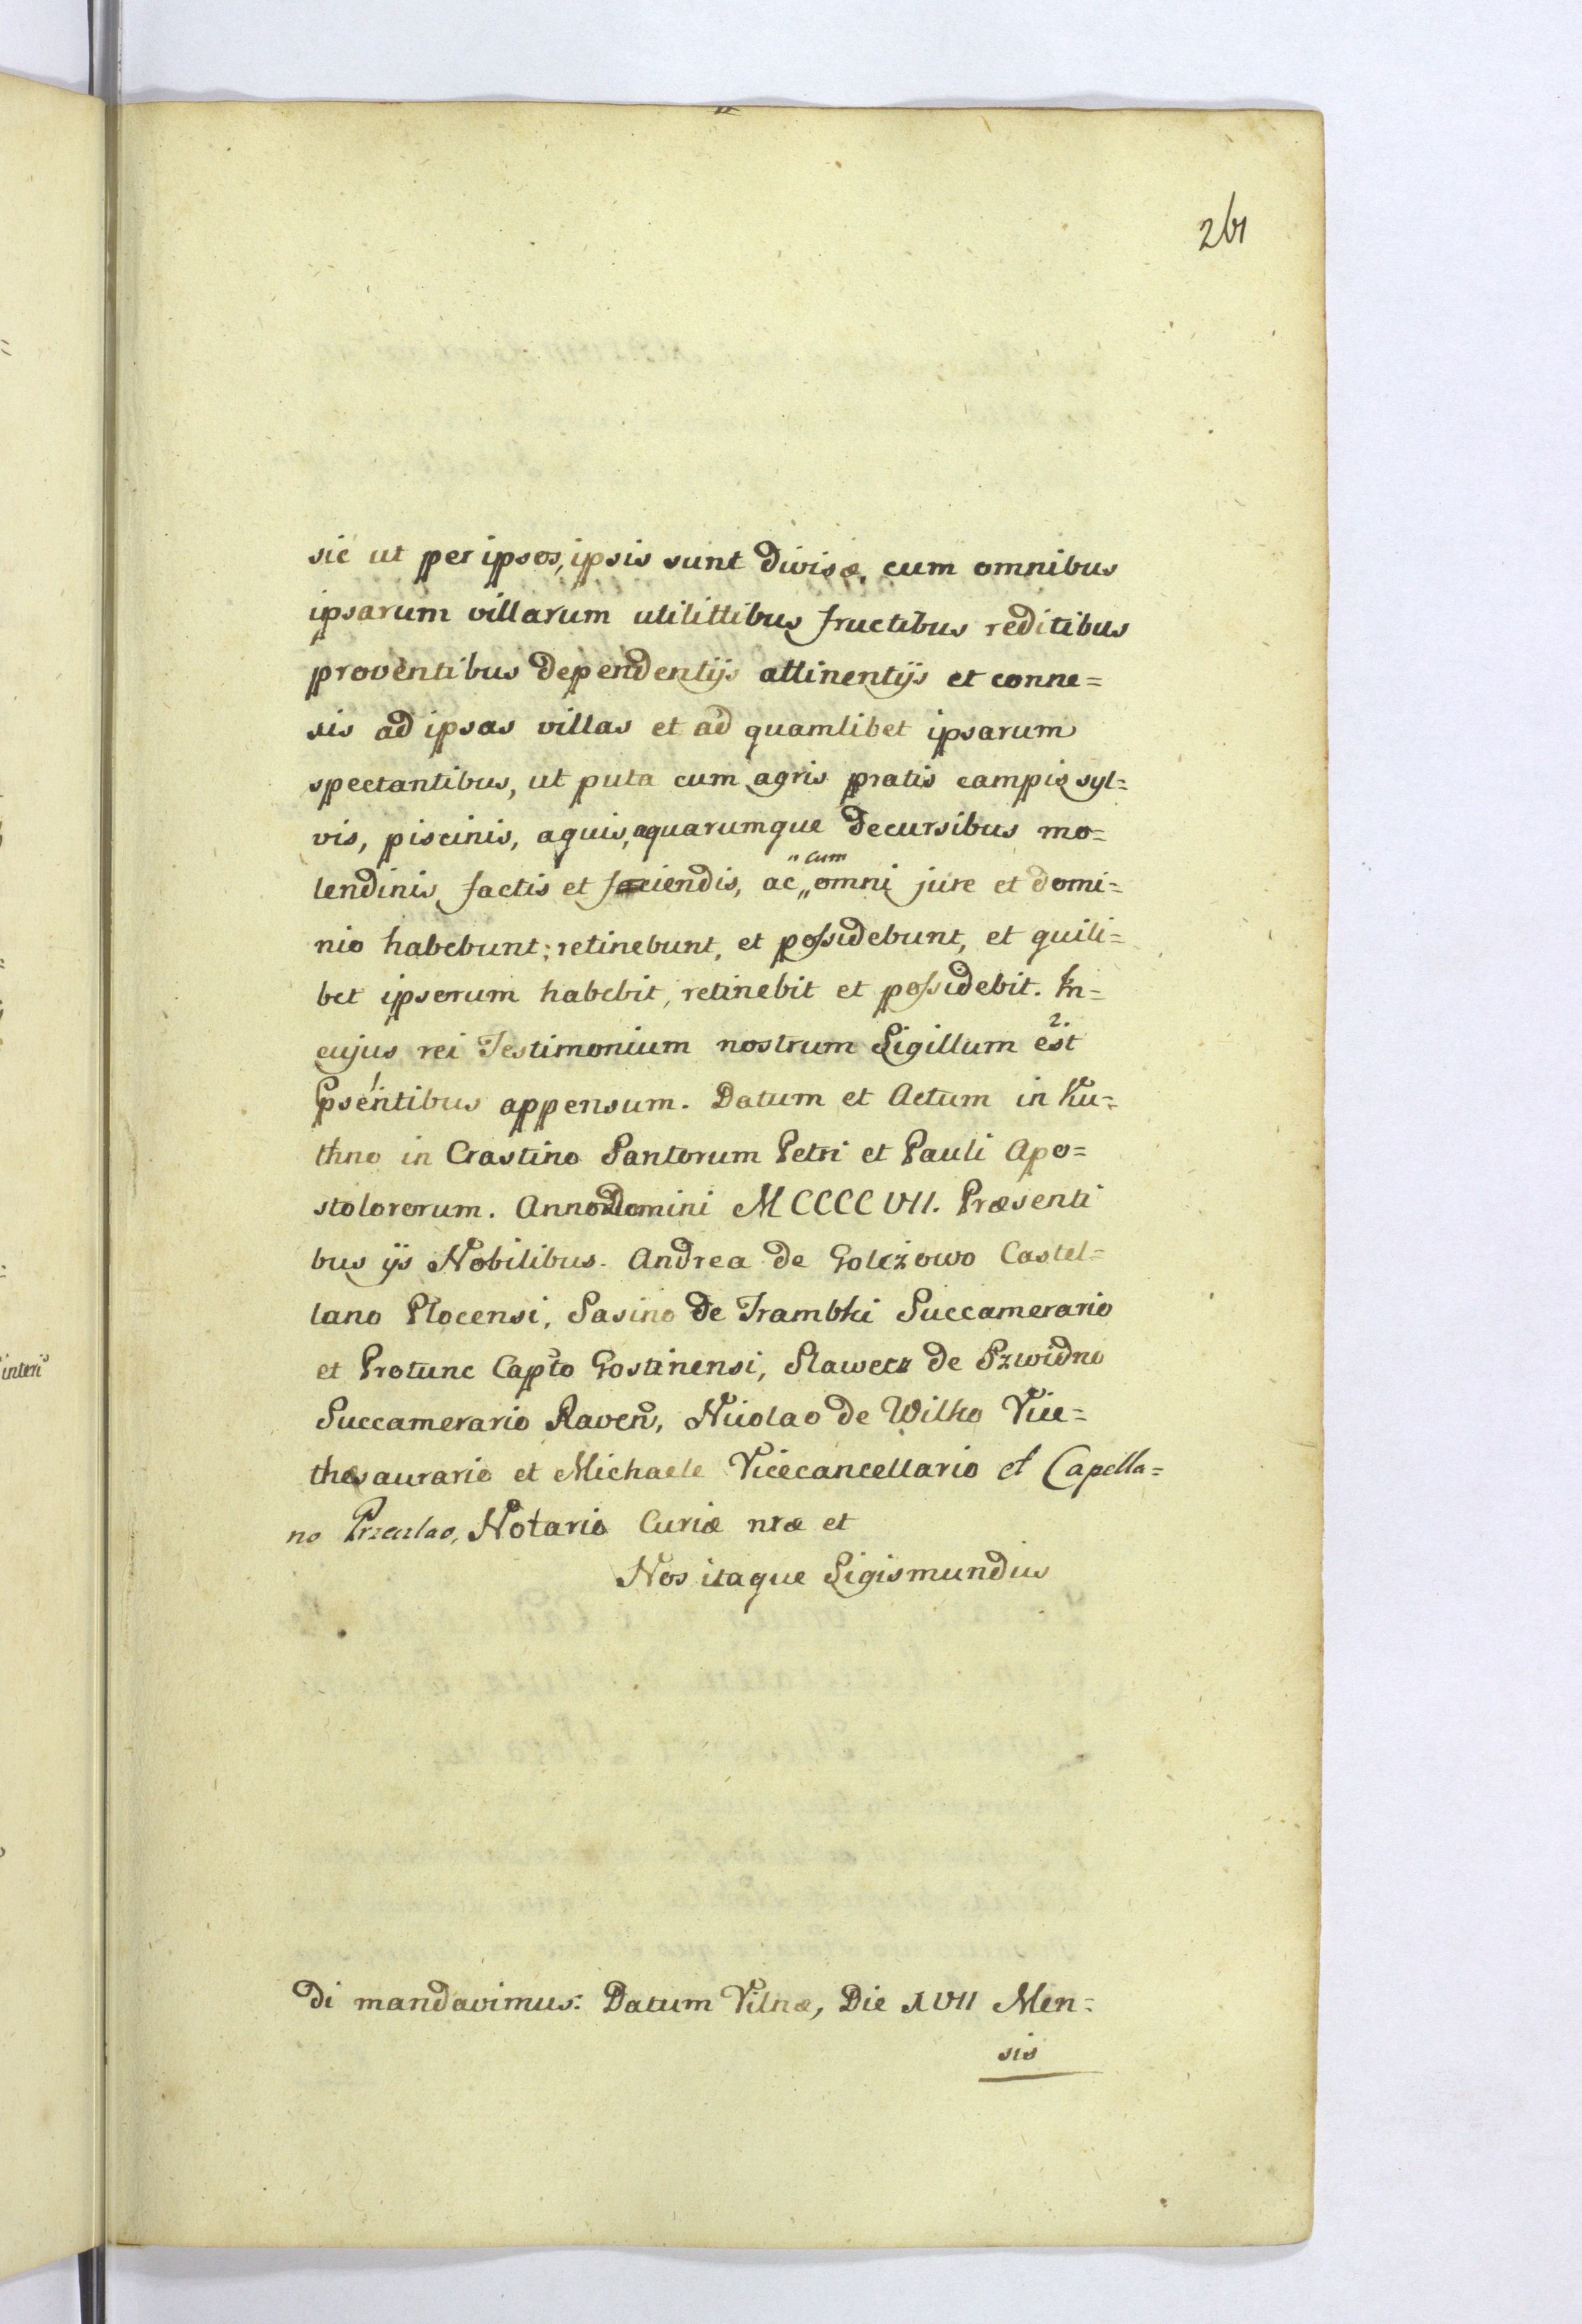 261
sic ut per ipsos, ipsis sunt divisæ, cum omnibus
ipsarum villarum utilittibus fructibus reditibus
proventibus dependentijs attinentijs et conne=
sis ad ipsas villas et ad quamlibet ipsarum
spectantibus, ut puta cum agris pratis campis syl=
vis, piscinis, aquis, aquarumque decursibus mo=
"cum
lendinis factis et faciendis, ac „ omni jure et domi=
nio habebunt; retinebunt, et possidebunt, et quili=
bet ipserum habebit, retinebit et possidebit. In=
cujus rei Testimonium nostrum Sigillum est 2.
psentibus appensum. Datum et Actum in Ku=
thno in Crastino Santorum Petri et Pauli Apo=
stolorerum. Anno Domini MCCCCVII. Præsenti
bus ijs Nobilibus. Andrea de Golczowo Castel=
lano Plocensi, Sasino de Trambki Succamerario
et Protunc Capto Gostinensi, Slawecz de Szwidno
Succamerario Raven, Nicolao de Wilko Vice=
thesaurario et Michaele Vicecancellario et Capella=
no Przeczlao, Notario Curiæ nræ et
Nos itaque Sigismundus
di mandavimus. Datum Vilnæ, Die XVII Men=
sis
interi